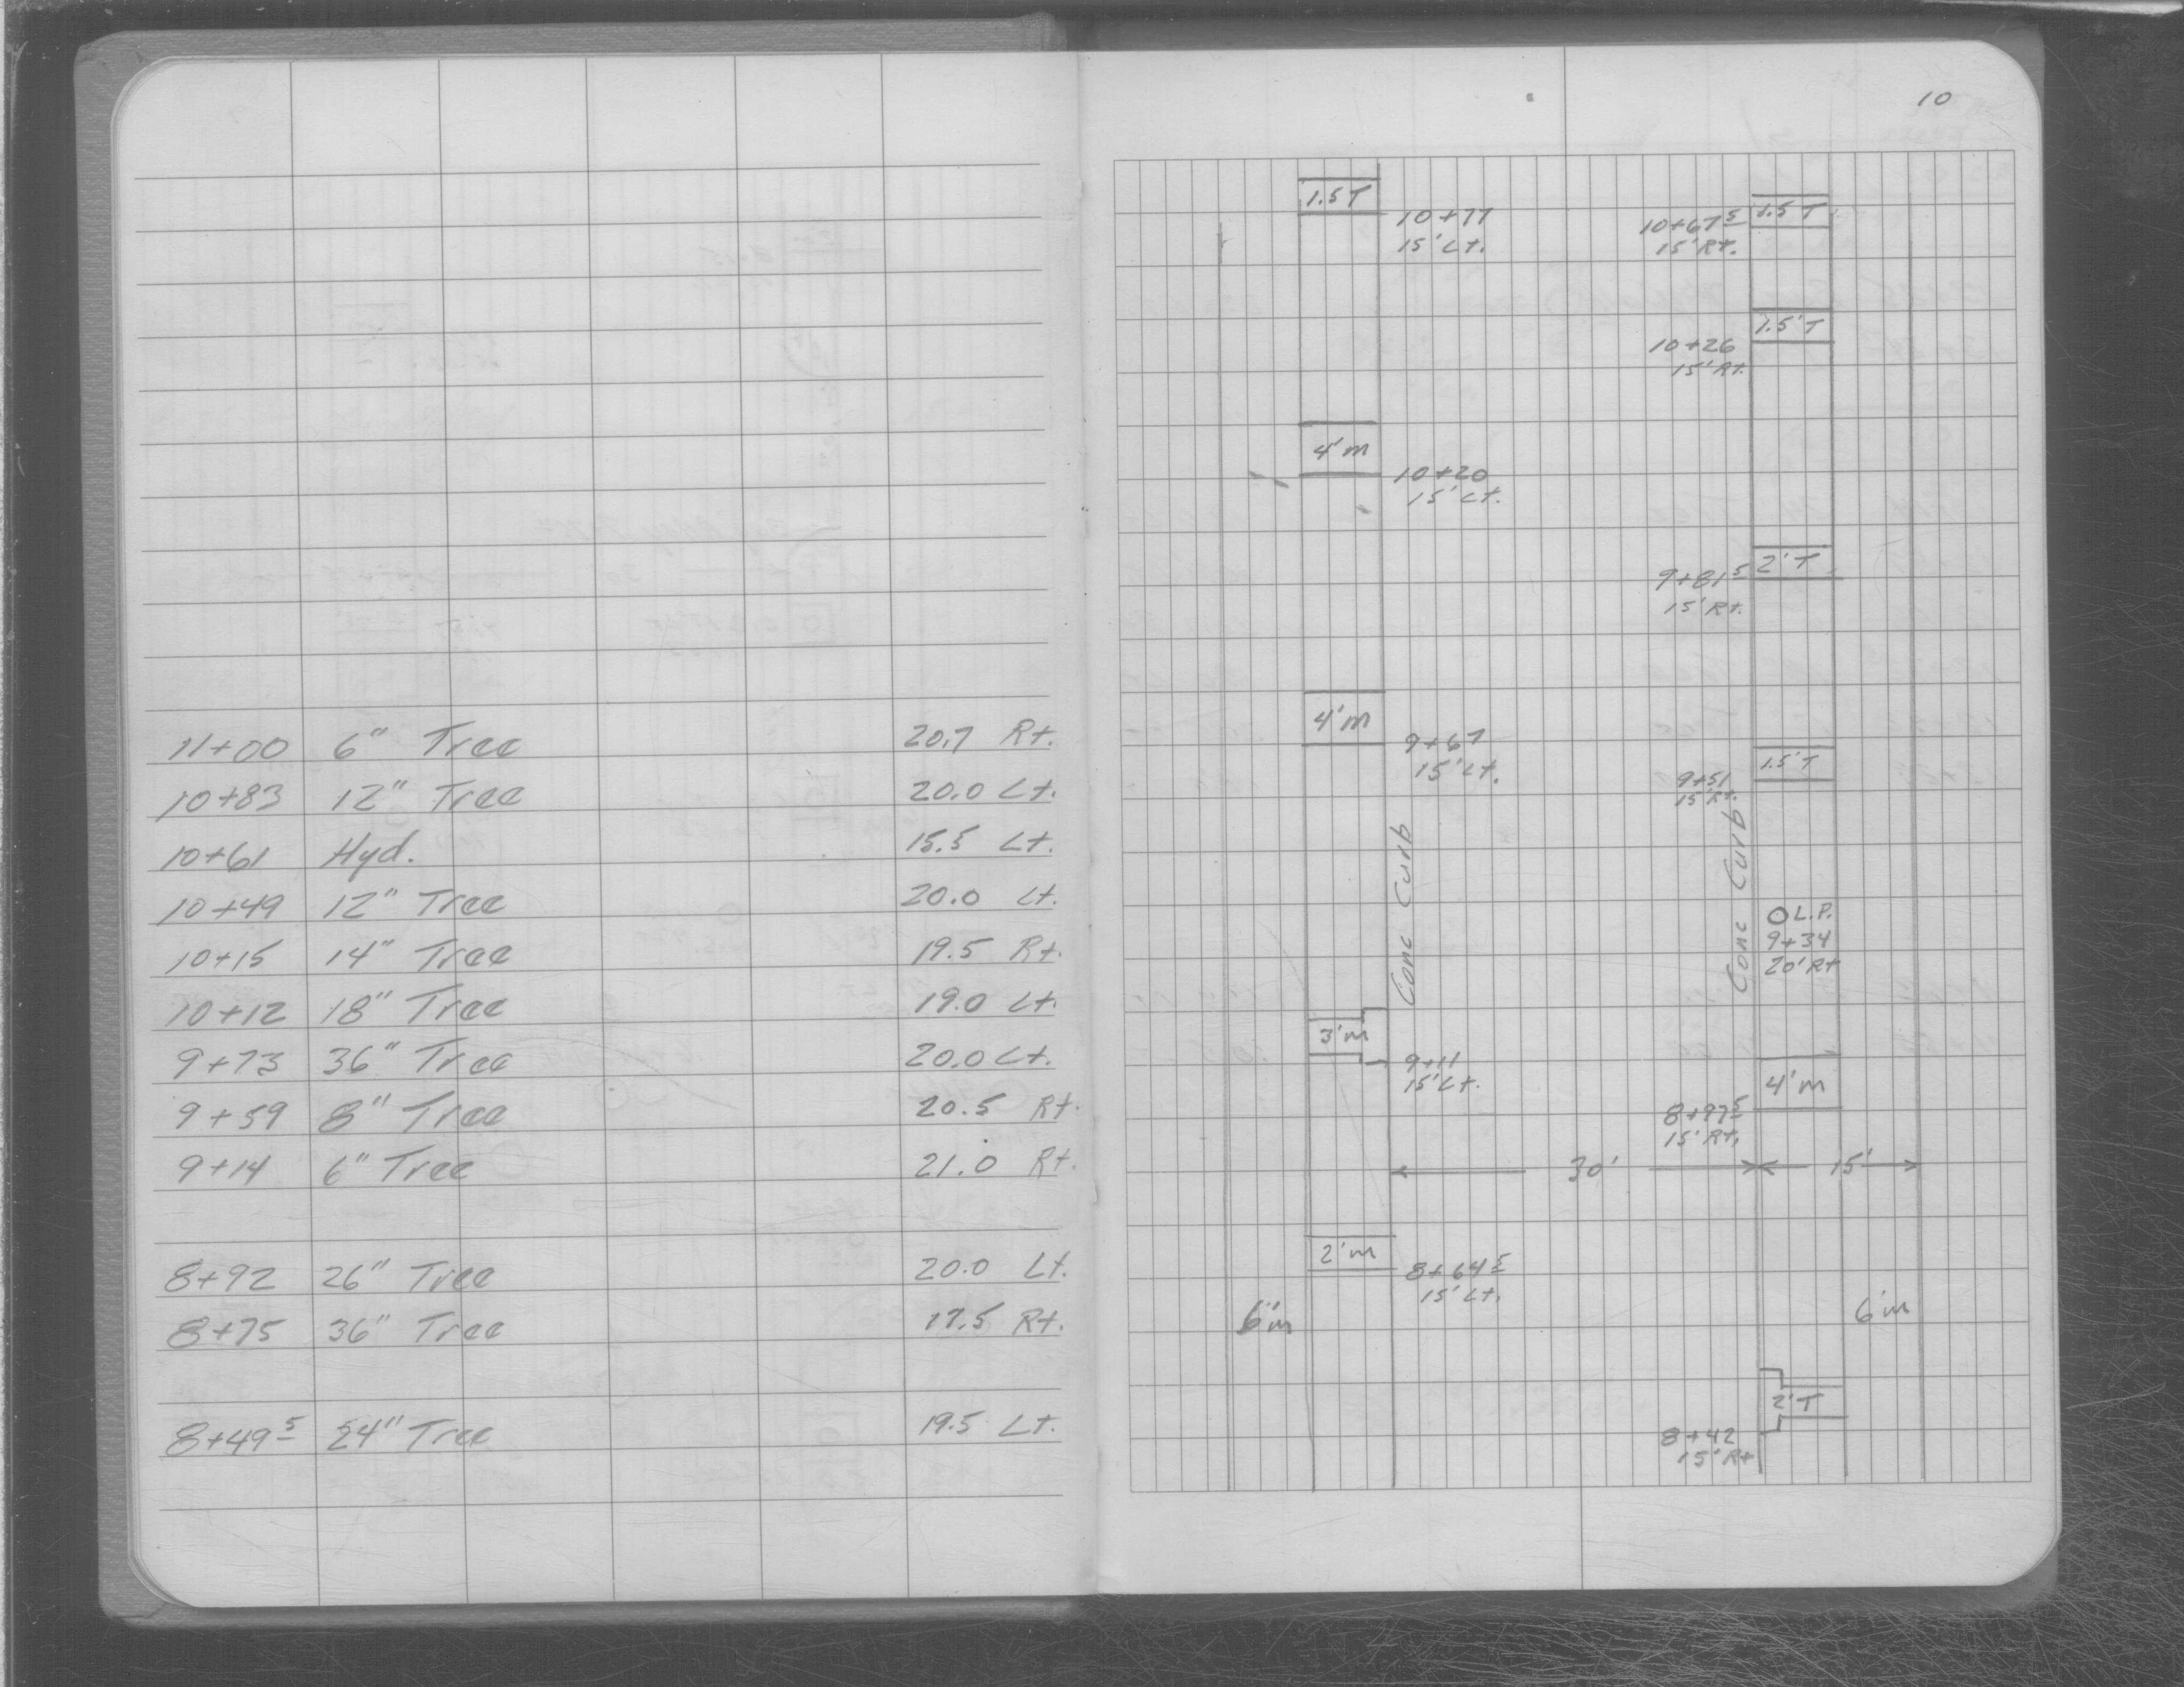 11+00 6" Tree 20.7 Rt.
10+83 12" Tree 20.0 Lt.
10+61 Hyd. 15.5 Lt.
10+49 12" Tree 20.0 Lt.
10+15 14" Tree 19.5 Rt.
10+12 18" Tree 19.0 Lt.
9+73 36" Tree 20.0 Lt.
9+59 8" Tree 20.5 Rt.
9+14 6" Tree 21.0 Rt.
8+92 26" Tree 20.0 Lt.
8+75 36" Tree Rt.
8+49 5 24" Tree 19.5 Lt.
10
1.5 T
10+77
15' Lt.
10+67 5 1.5 T
15' Rt.
1.5' T
10+26
15' Rt.
4' m
10+20
15' Lt.
2' T
9+81 5
15' Rt.
4' m
9+67
15' Lt.
1.5' T
9+51
15' Rt.
Conc Curb
Conc Curb
O L.P.
9+34
20' Rt
3' m
9+11
15' Lt.
4' m
8+97 5
15' Rt.
30'
15'
2' m
8+64 5
15' Lt.
6' m
6' m
2' T
8+42
15' Rt